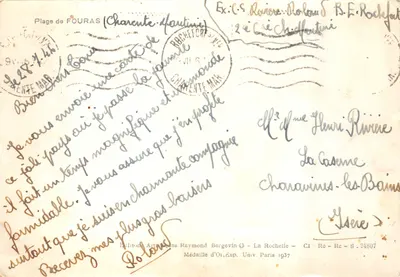 Plage de FOURAS (Charente-Maritime)
Ex: C.S. Rivière Roland B.E. Rochefort
2e Cie
ROCHEFORT
CHARENTE MAR
Le 28-7-46
Bien chers
Je vous envoie une carte de
ce joli pays où je passe la journée
il fait un temps magnifique et un monde
formidable. Je vous assure que j'en profite
surtout que je suis en charmante compagnie
Recevez mes plus gros baisers
Roland
Mr Mme Henri Rivière
La Caserne
Charavines-les-Bains
(Isère)
Raymond Bergevin - La Rochelle
Médaille d'Or, Exp. Univ. Paris 1937